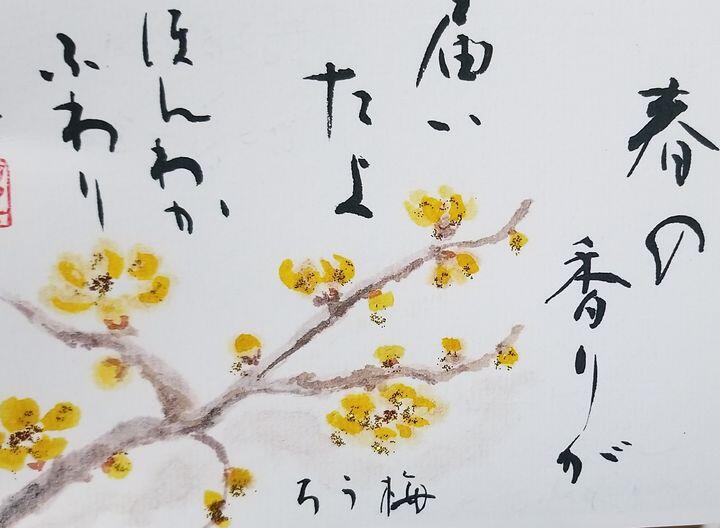 春の
香りが
届い
たよ
ほんわか
ふわり
ろう梅